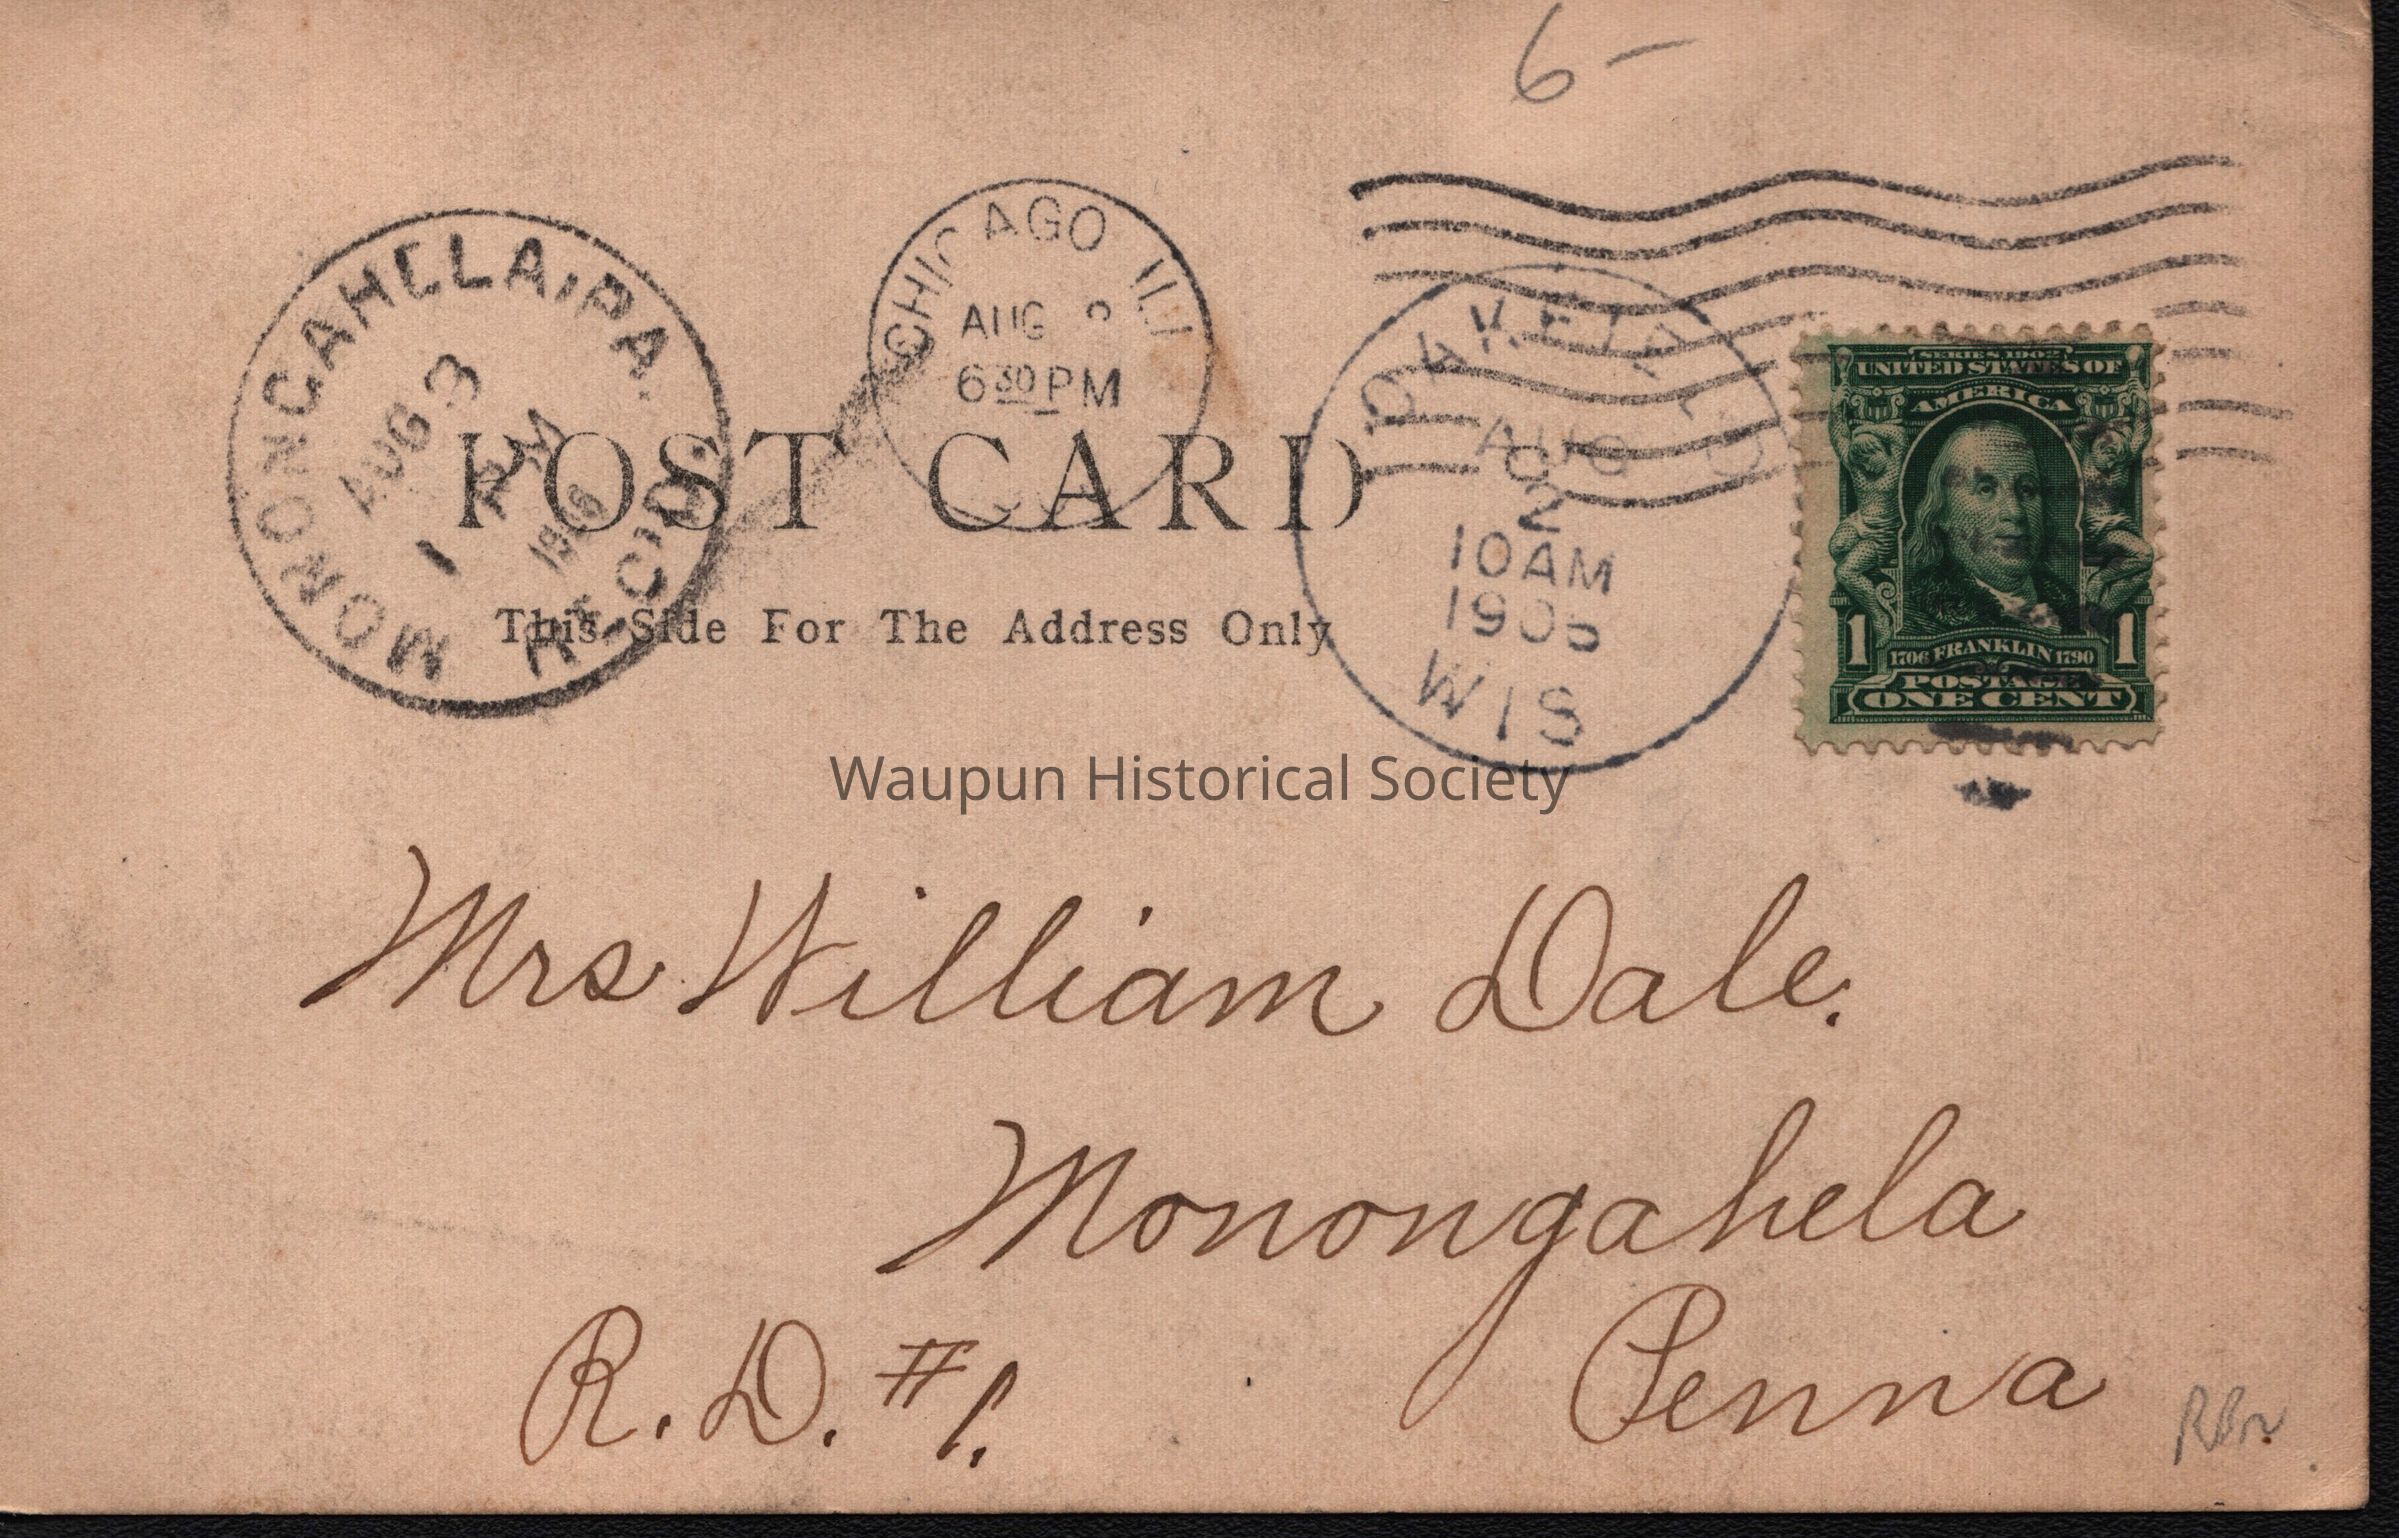 6-
MONONGAHELA, PA.
AUG 3
1 PM
1906
REC'D.
CHICAGO ILL
AUG 2
6 30 PM
OAKFIELD
AUG
2
10 AM
1906
WIS
SERIES 1902
UNITED STATES OF
AMERICA
1 1
1706 FRANKLIN 1790
POSTAGE
ONE CENT
POST CARD
This Side For The Address Only
Waupun Historical Society
Mrs William Dale.
Monongahela
R. D. #1. Penna